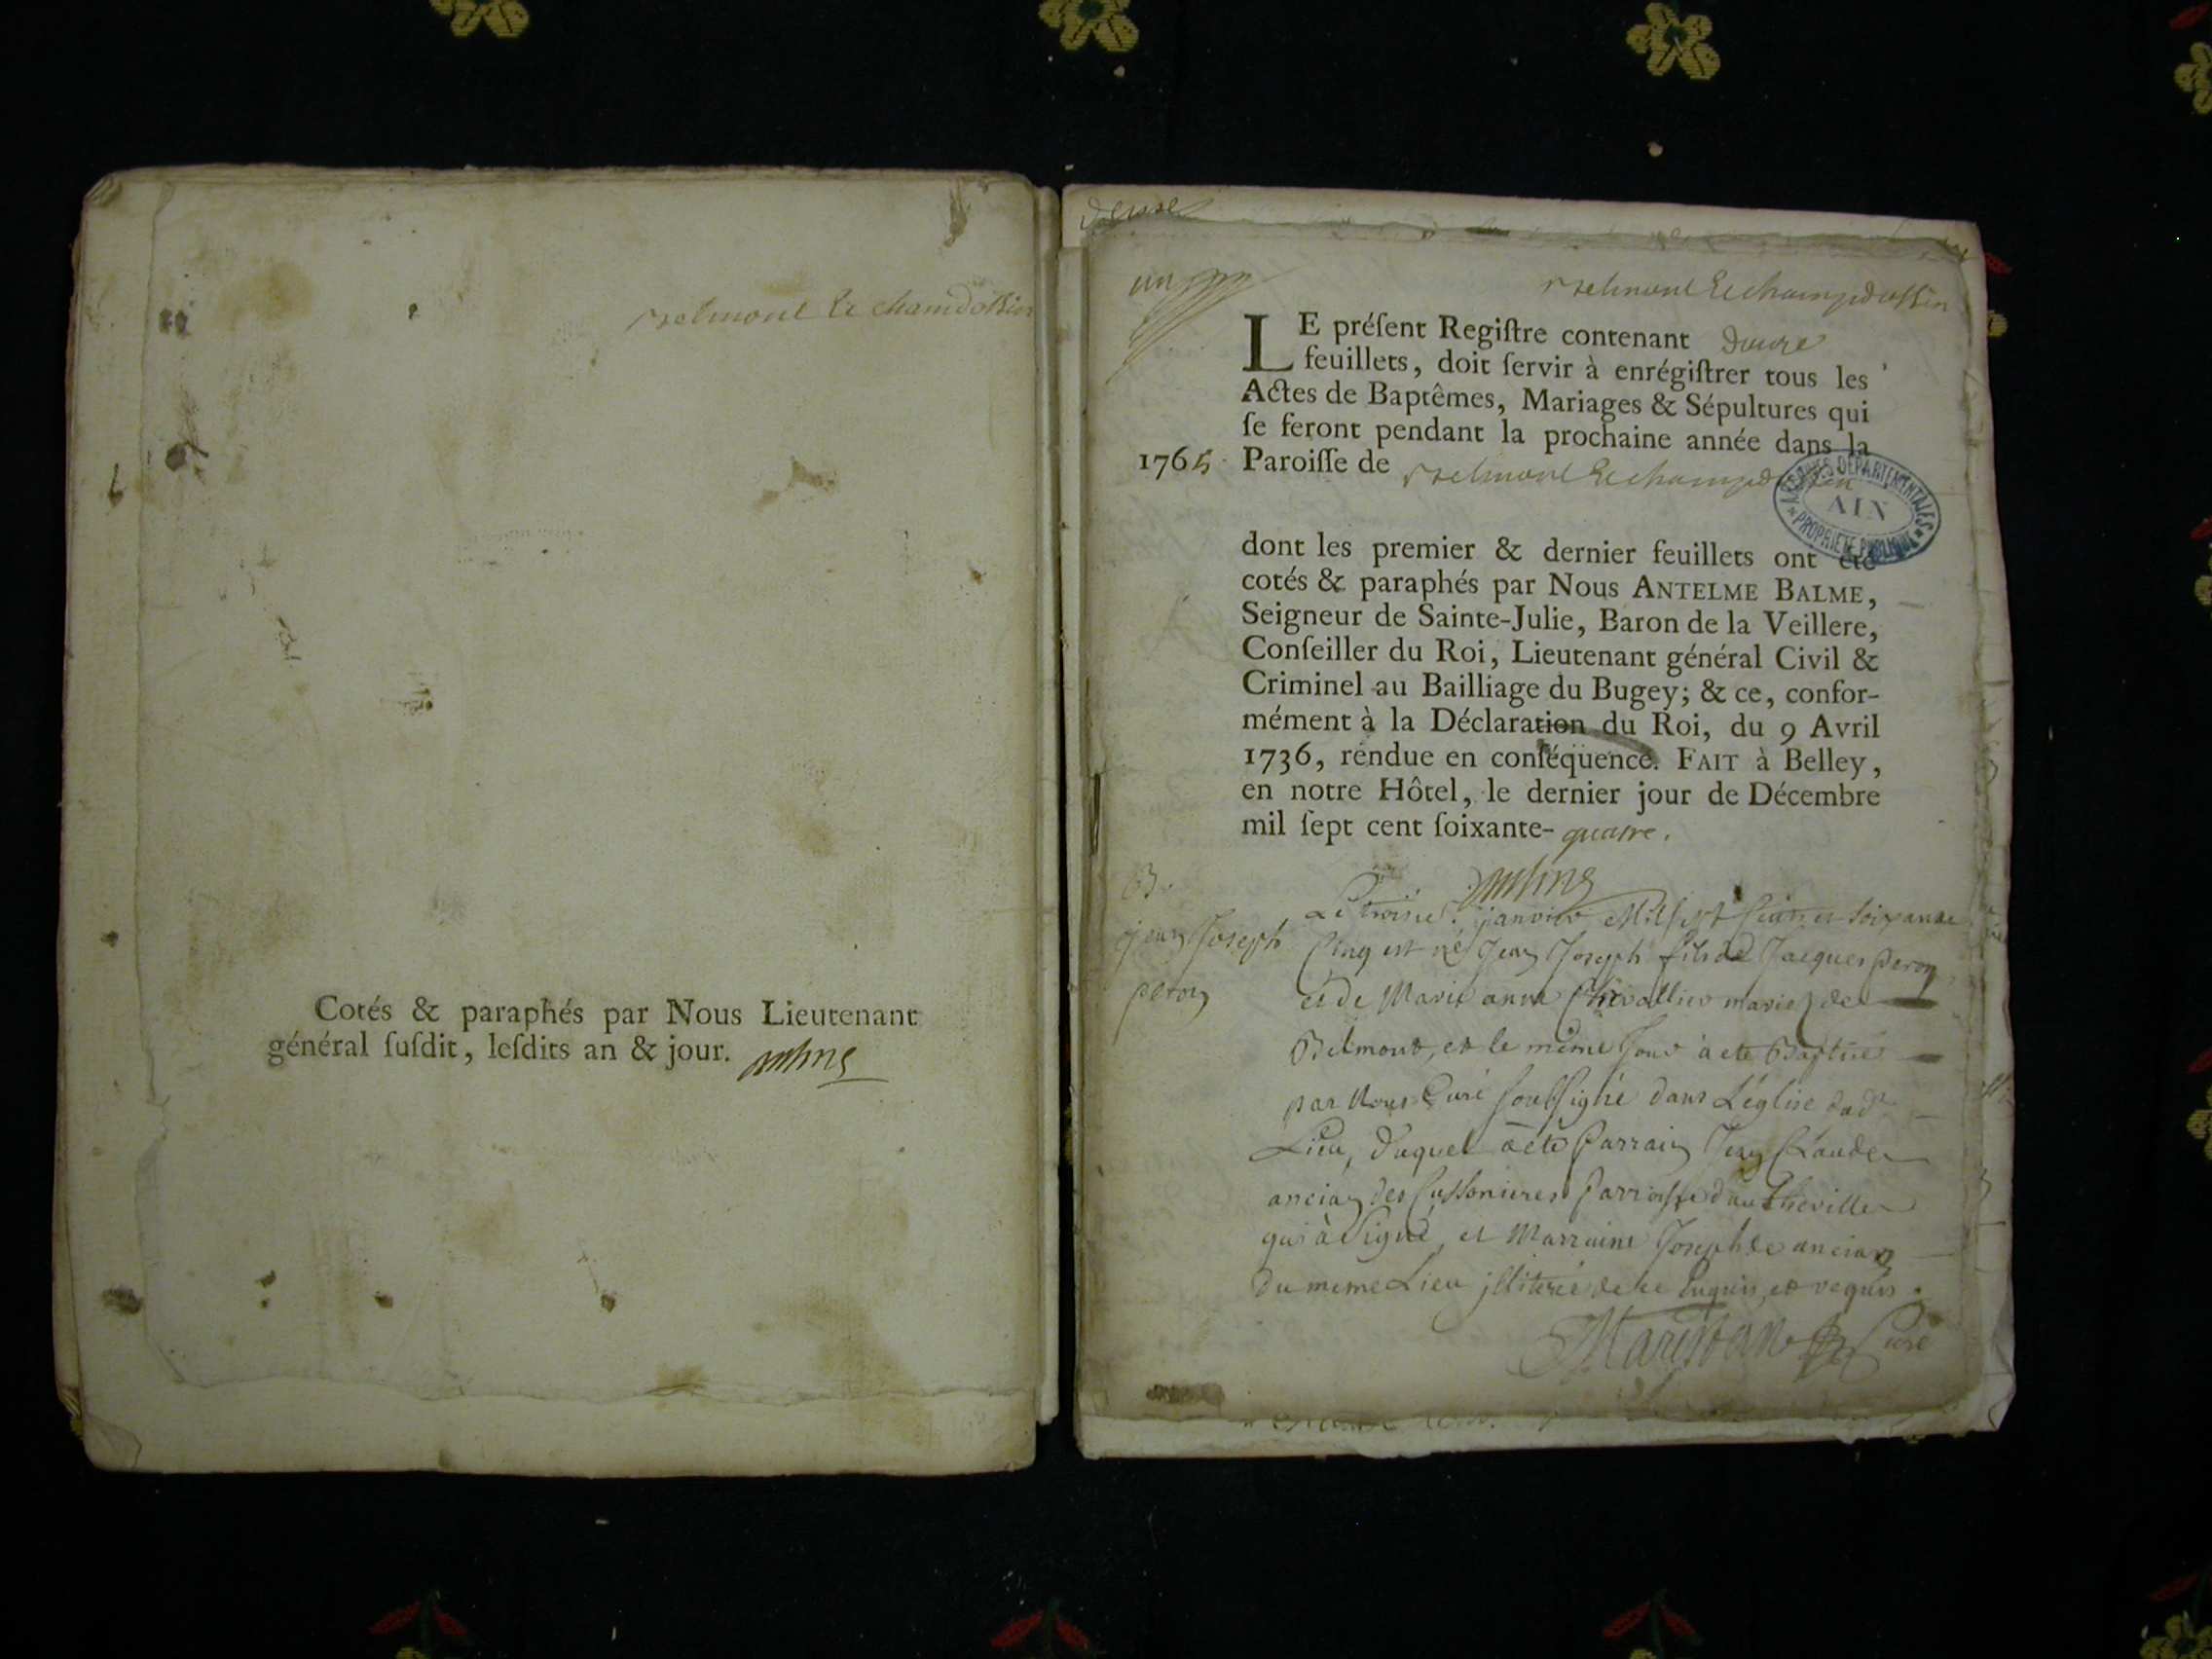 Belmont & chamdossin
Cotés & paraphés par Nous Lieutenant
général ſuſdit, leſdits an & jour.
un
Belmont & champdossin
LE préſent Regiſtre contenant douze
feuillets, doit ſervir à enrégiſtrer tous les
Actes de Baptêmes, Mariages & Sépultures qui
ſe feront pendant la prochaine année dans la
1765 Paroiſſe de Belmont & champdossin
ARCHIVES DÉPARTEMENTALES
AIN
PROPRIÉTÉ PUBLIQUE
dont les premier & dernier feuillets ont été
cotés & paraphés par Nous ANTELME BALME,
Seigneur de Sainte-Julie, Baron de la Veillere,
Conſeiller du Roi, Lieutenant général Civil &
Criminel au Bailliage du Bugey; & ce, confor-
mément à la Déclaration du Roi, du 9 Avril
1736, rendue en conſéquence. FAIT à Belley,
en notre Hôtel, le dernier jour de Décembre
mil ſept cent ſoixante-quatre.
B.
jean Joseph
peron
Le troise. janvier Mil sept Cent et soixante
Cinq est né Jean Joseph fils de Jacques peron
et de Marie anne Chevallier mariez de
Belmont, et le même Jour à eté Baptisé
par Nous Curé soubsigné dans L'église dud.
Lieu, duquel à eté Parrain Jean Claude
ancian des Cussonieres Parroisse
qui à Signé, et Marraine Josephte ancian
du meme Lieu illiterée de ce Enquis, et requis.
Curé